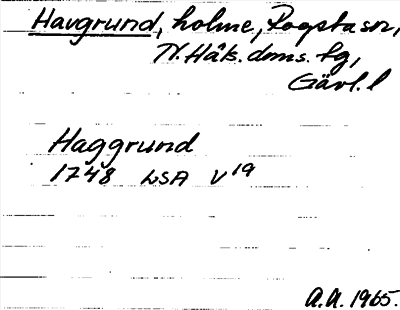 Havgrund, holme, Rogsta sn,
N. Häls. doms. tg,
Gävl. l
Haggrund
1748 LSA V19
A.A. 1965.